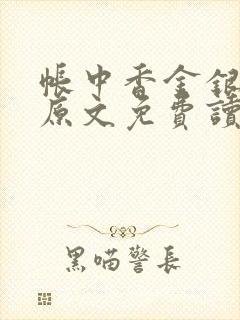 帳中香金銀
原文免費讀
黑喵警長